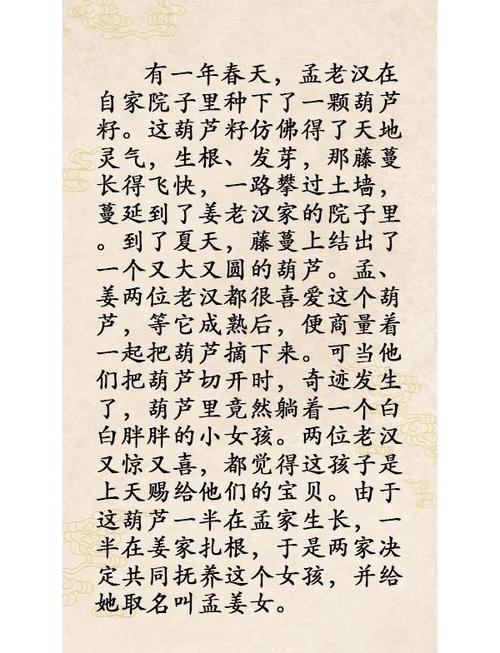 有一年春天，孟老汉在
自家院子里种下了一颗葫芦
籽。这葫芦籽仿佛得了天地
灵气，生根、发芽，那藤蔓
长得飞快，一路攀过土墙，
蔓延到了姜老汉家的院子里
。到了夏天，藤蔓上结出了
一个又大又圆的葫芦。孟、
姜两位老汉都很喜爱这个葫
芦，等它成熟后，便商量着
一起把葫芦摘下来。可当他
们把葫芦切开时，奇迹发生
了，葫芦里竟然躺着一个白
白胖胖的小女孩。两位老汉
又惊又喜，都觉得这孩子是
上天赐给他们的宝贝。由于
这葫芦一半在孟家生长，一
半在姜家扎根，于是两家决
定共同抚养这个女孩，并给
她取名叫孟姜女。